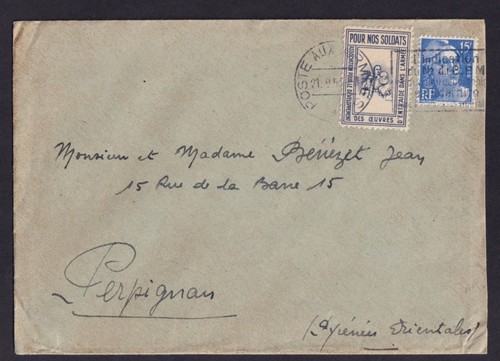 POUR NOS SOLDATS
DES ŒUVRES
D'ENTR'AIDE DANS L'ARMÉE
POSTE AUX ARMÉES
15F
RF
l'indication
Monsieur et Madame Bénézet Jean
15 Rue de la Barre 15
Perpignan
(Pyrénées Orientales)